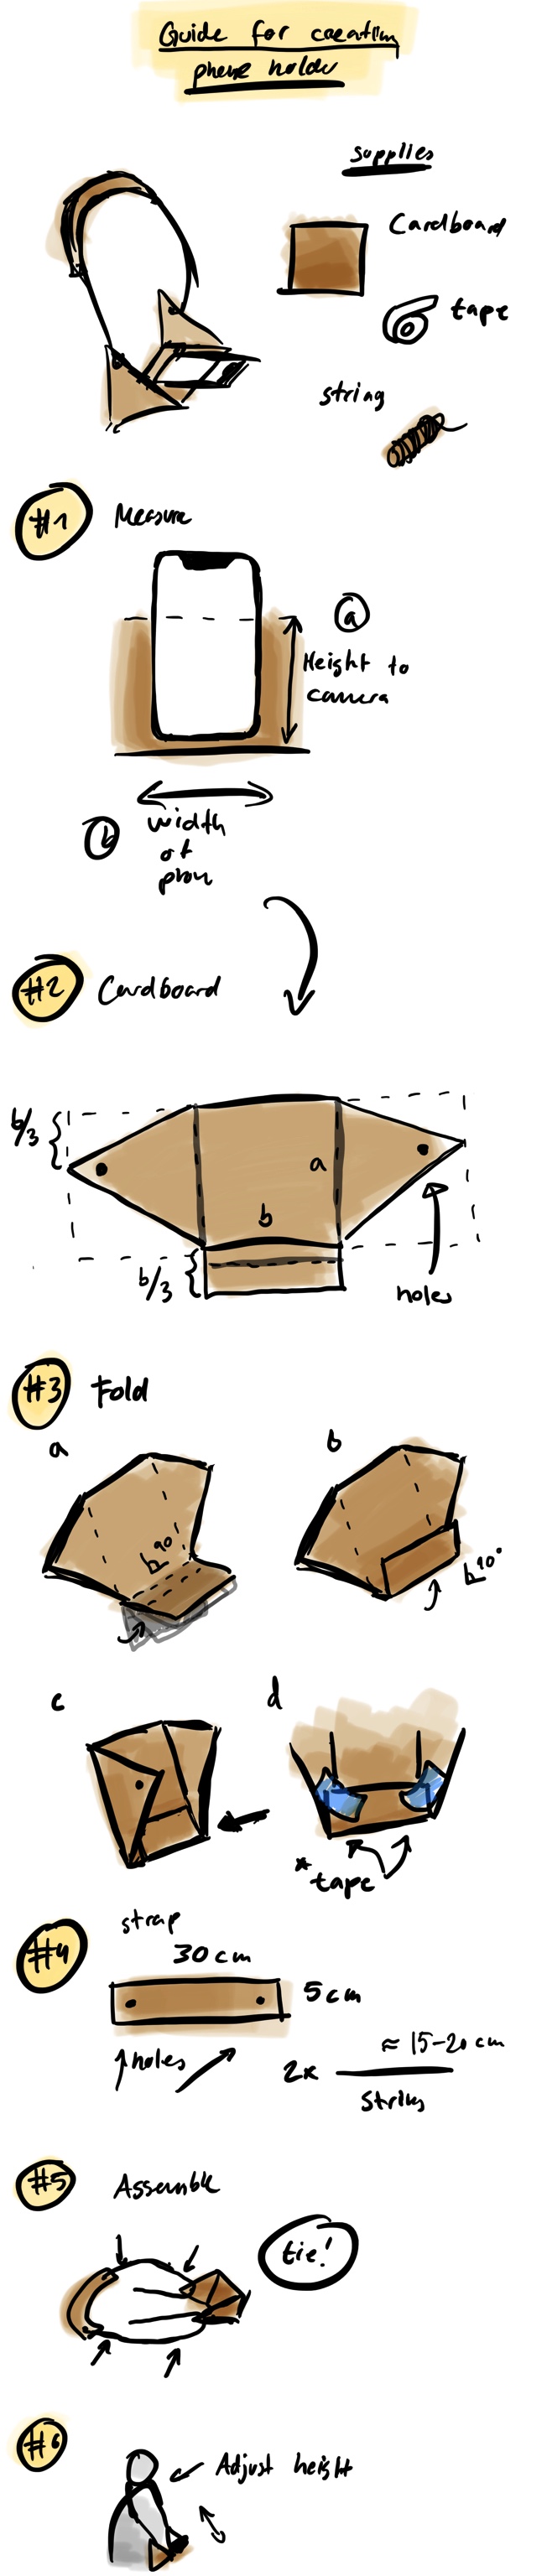 Guide for creating
phone holder
supplies
Cardboard
tape
string
#1 Measure
a
Height to
camera
b width
of
phon
#2 Cardboard
b/3
a
b
b/3
holes
#3 Fold
a
b
90
90°
c
d
* tape
#4 strap
30 cm
5 cm
holes
≈ 15-20 cm
2x
String
#5 Assemble
tie!
#6
Adjust height